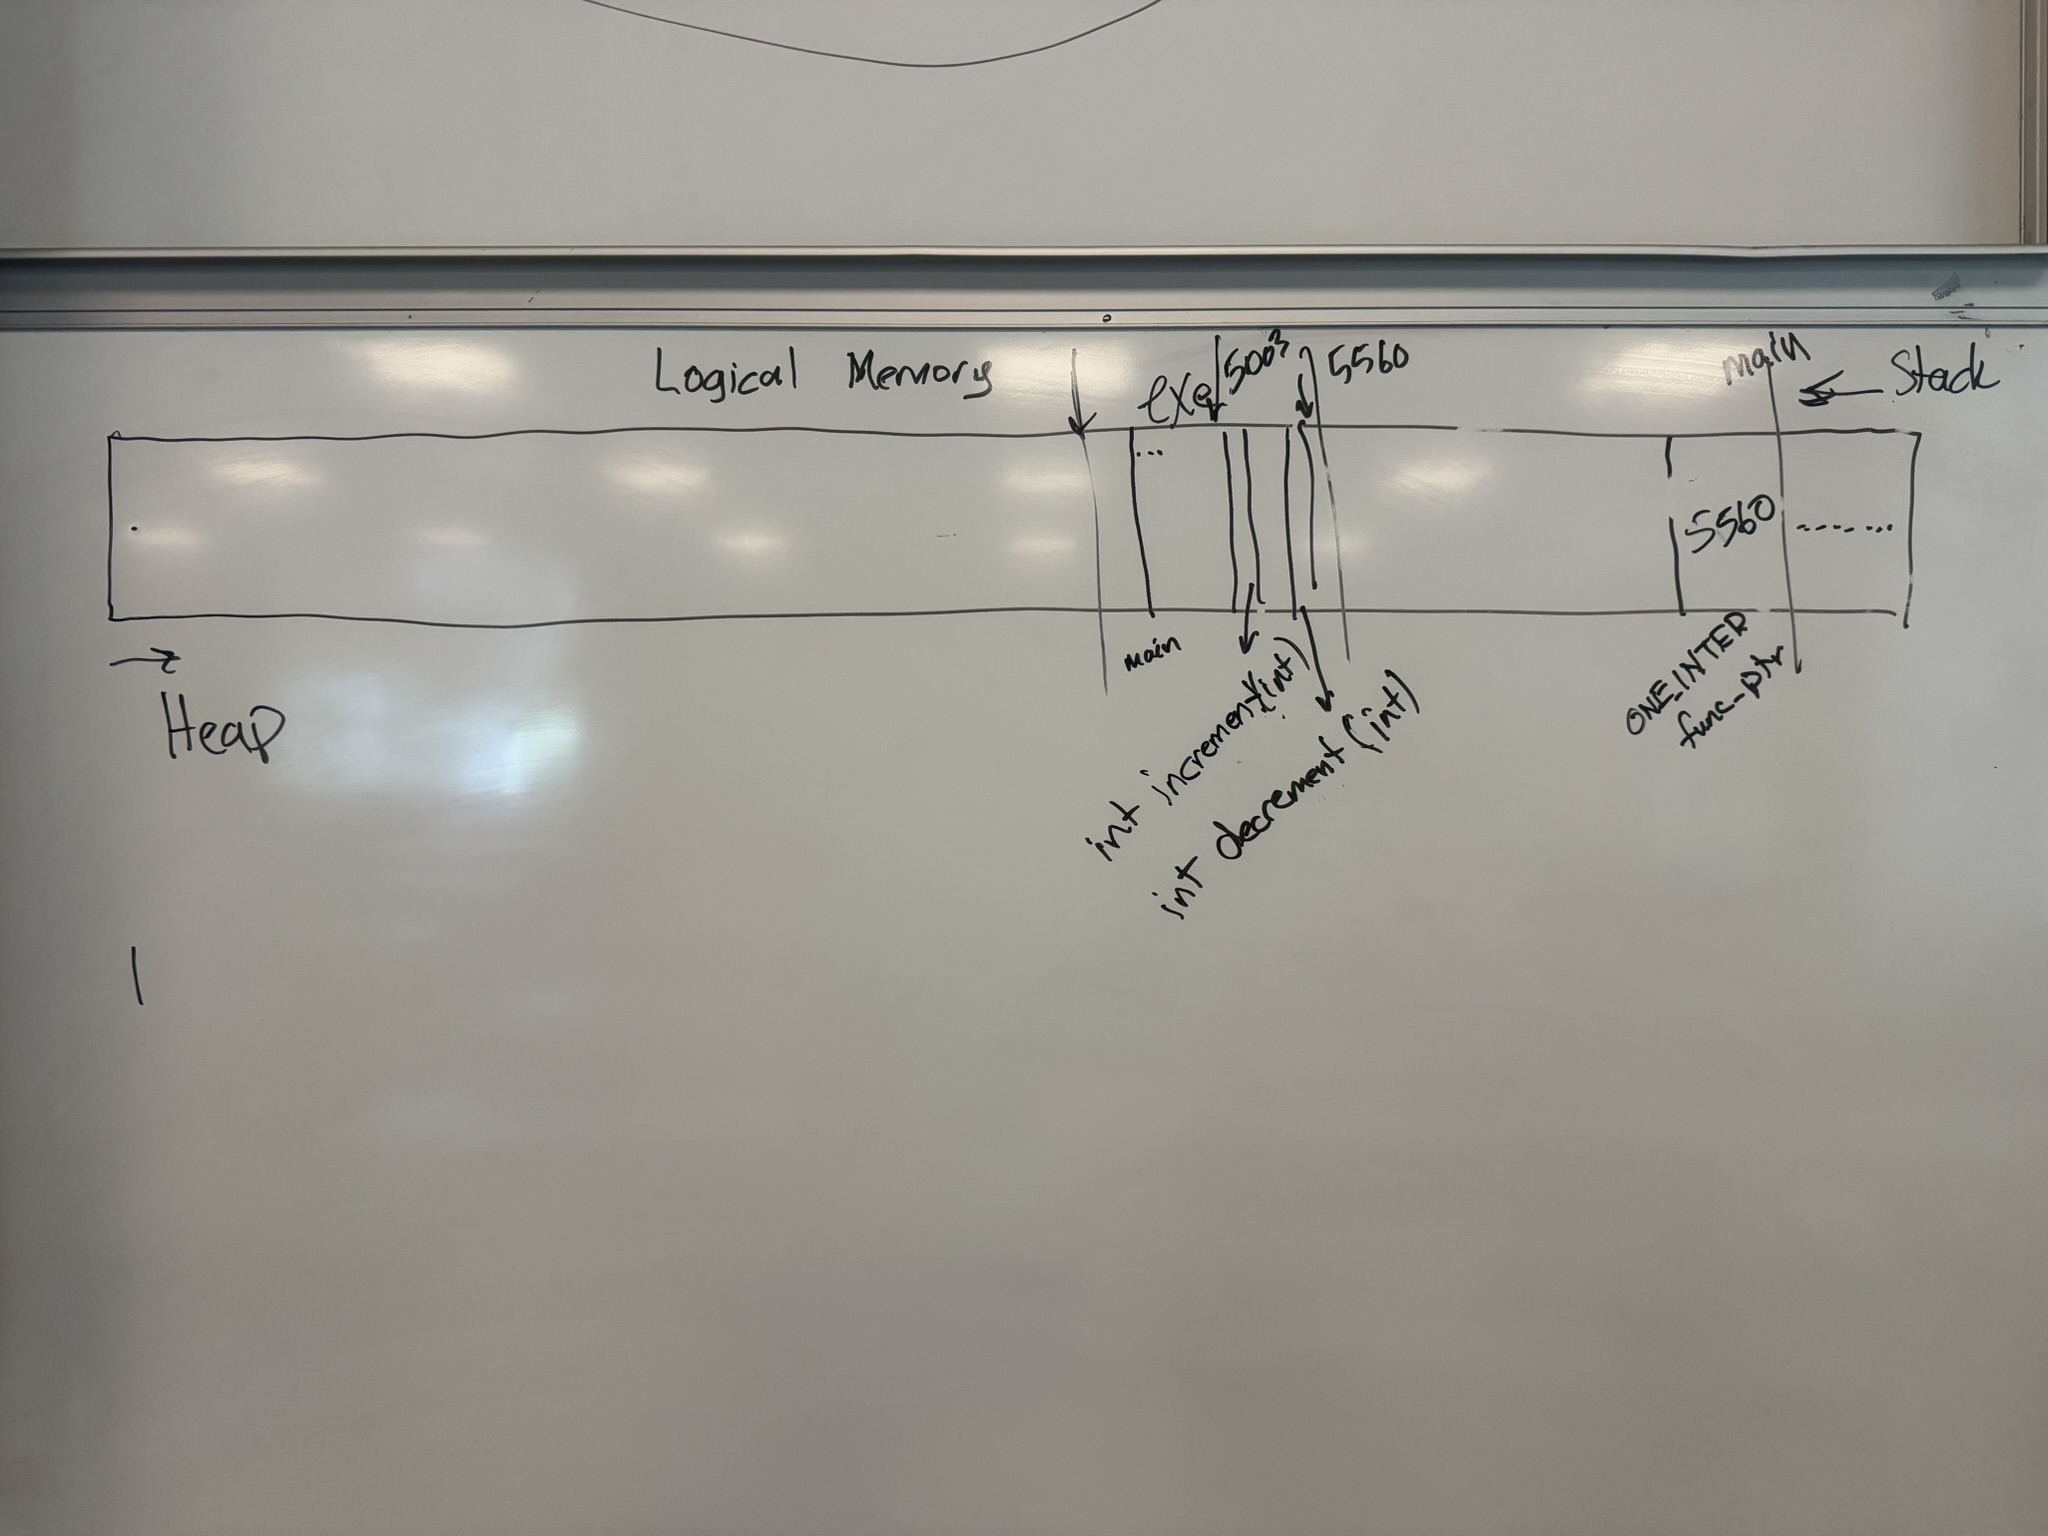 Logical Memory
exe
5003
5560
main
← Stack
...
5560
.......
→
Heap
main
int increment(int)
int decrement(int)
ONE_INTER
func_ptr